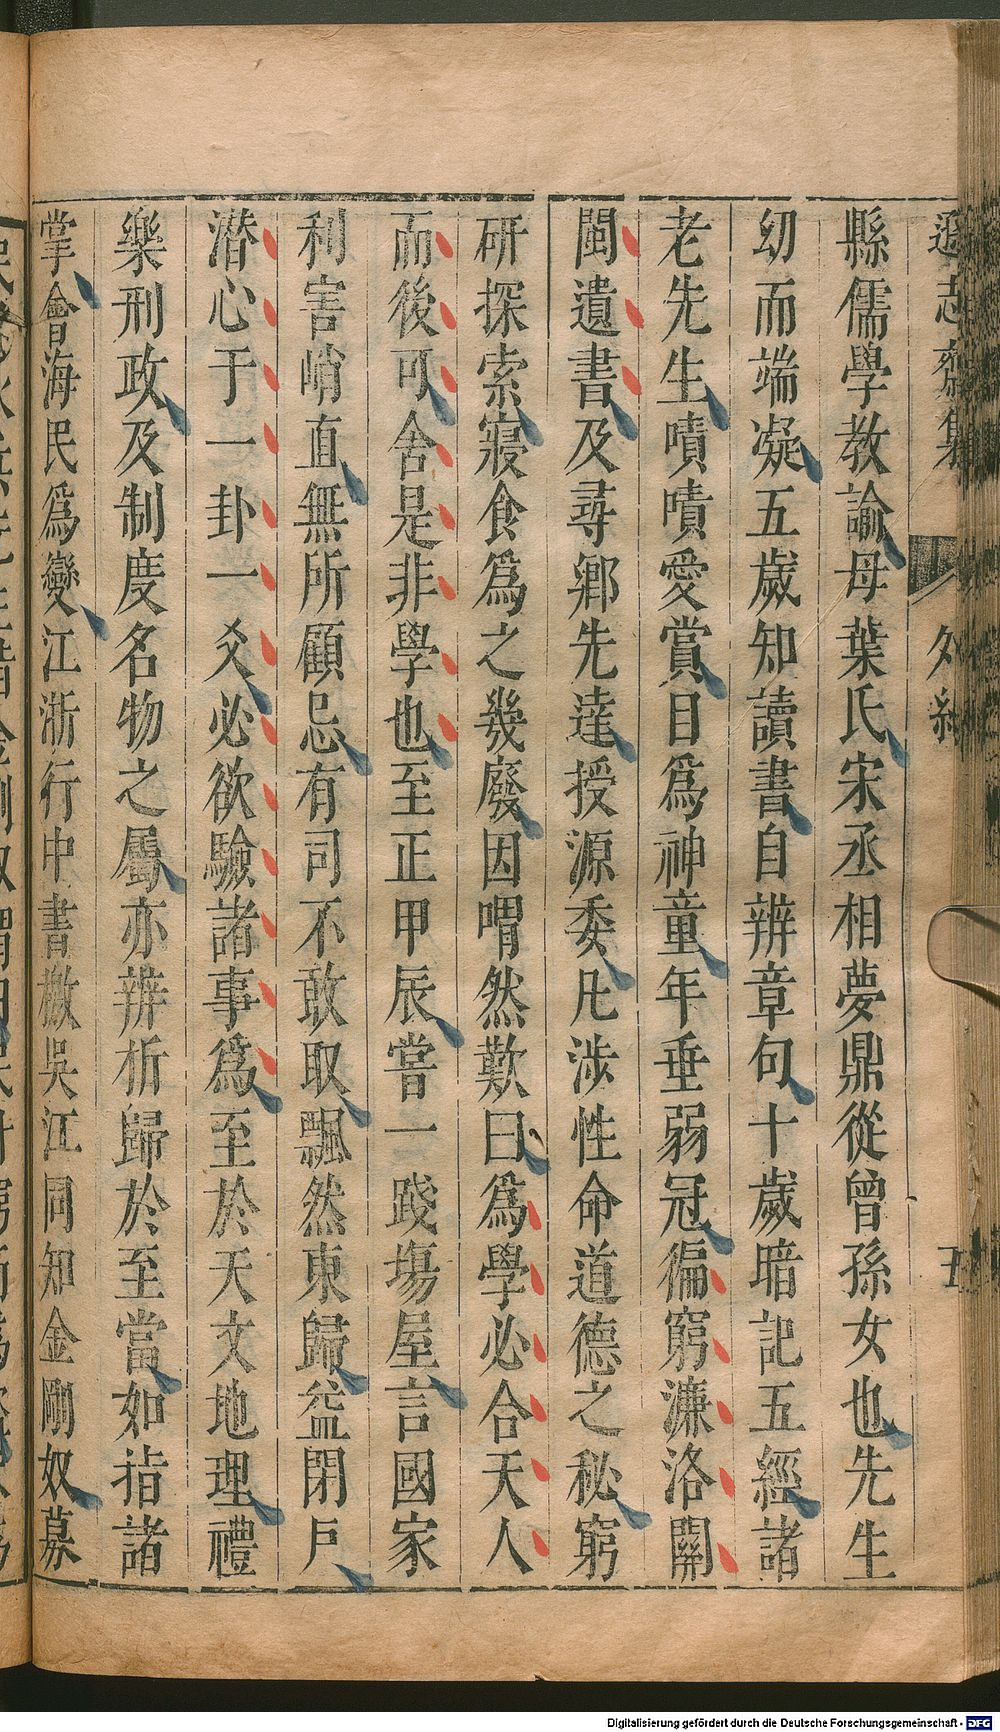 遜志齋集 外紀 五
縣儒學教諭母葉氏宋丞相夢鼎從曾孫女也先生
幼而端凝五歲知讀書自辨章句十歲暗記五經諸
老先生嘖嘖愛賞目爲神童年垂弱冠徧窮濂洛關
閩遺書及尋鄉先達授源委凡涉性命道德之秘窮
研探索寢食爲之幾廢因喟然歎曰爲學必合天人
而後可舍是非學也至正甲辰嘗一踐塲屋言國家
利害峭直無所顧忌有司不敢取飄然東歸益閉戶
潛心于一卦一爻必欲驗諸事爲至於天文地理禮
樂刑政及制度名物之屬亦辨析歸於至當如指諸
掌會海民爲變江浙行中書檄吳江同知金剛奴募
Digitalisierung gefördert durch die Deutsche Forschungsgemeinschaft - DFG